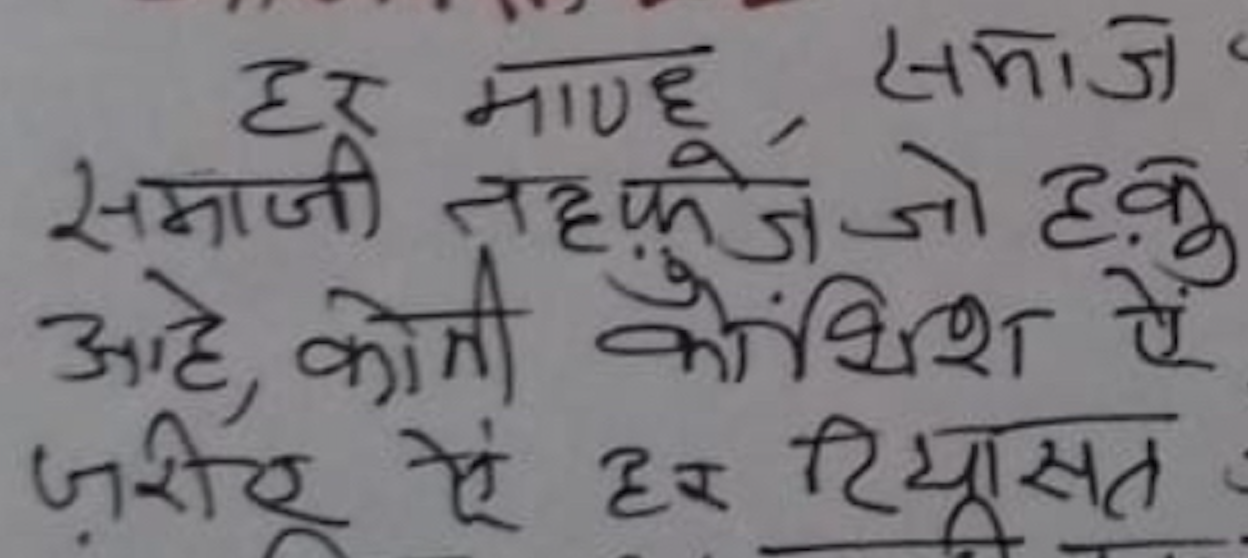 हर माण्हू, समाज
समाजी तहफ़ुज़ जो हक़ु
आहे, कोमी कोशिश ऐं
ज़रीए ऐं हर रियासत